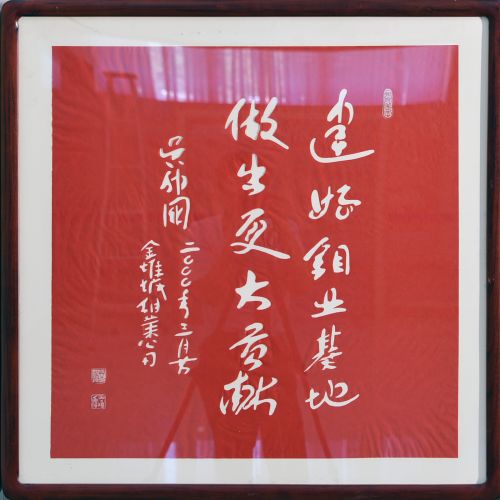 建好钼业基地
做出更大贡献
吴邦國
二〇〇〇年三月廿
金堆城钼业公司